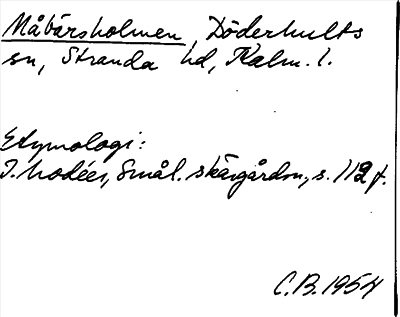 Måbärsholmen, Döderhults
sn, Stranda hd, Kalm. l.
Etymologi:
I. Modéer, Smål. skärgårdsn., s. 112 f.
C.B. 1954